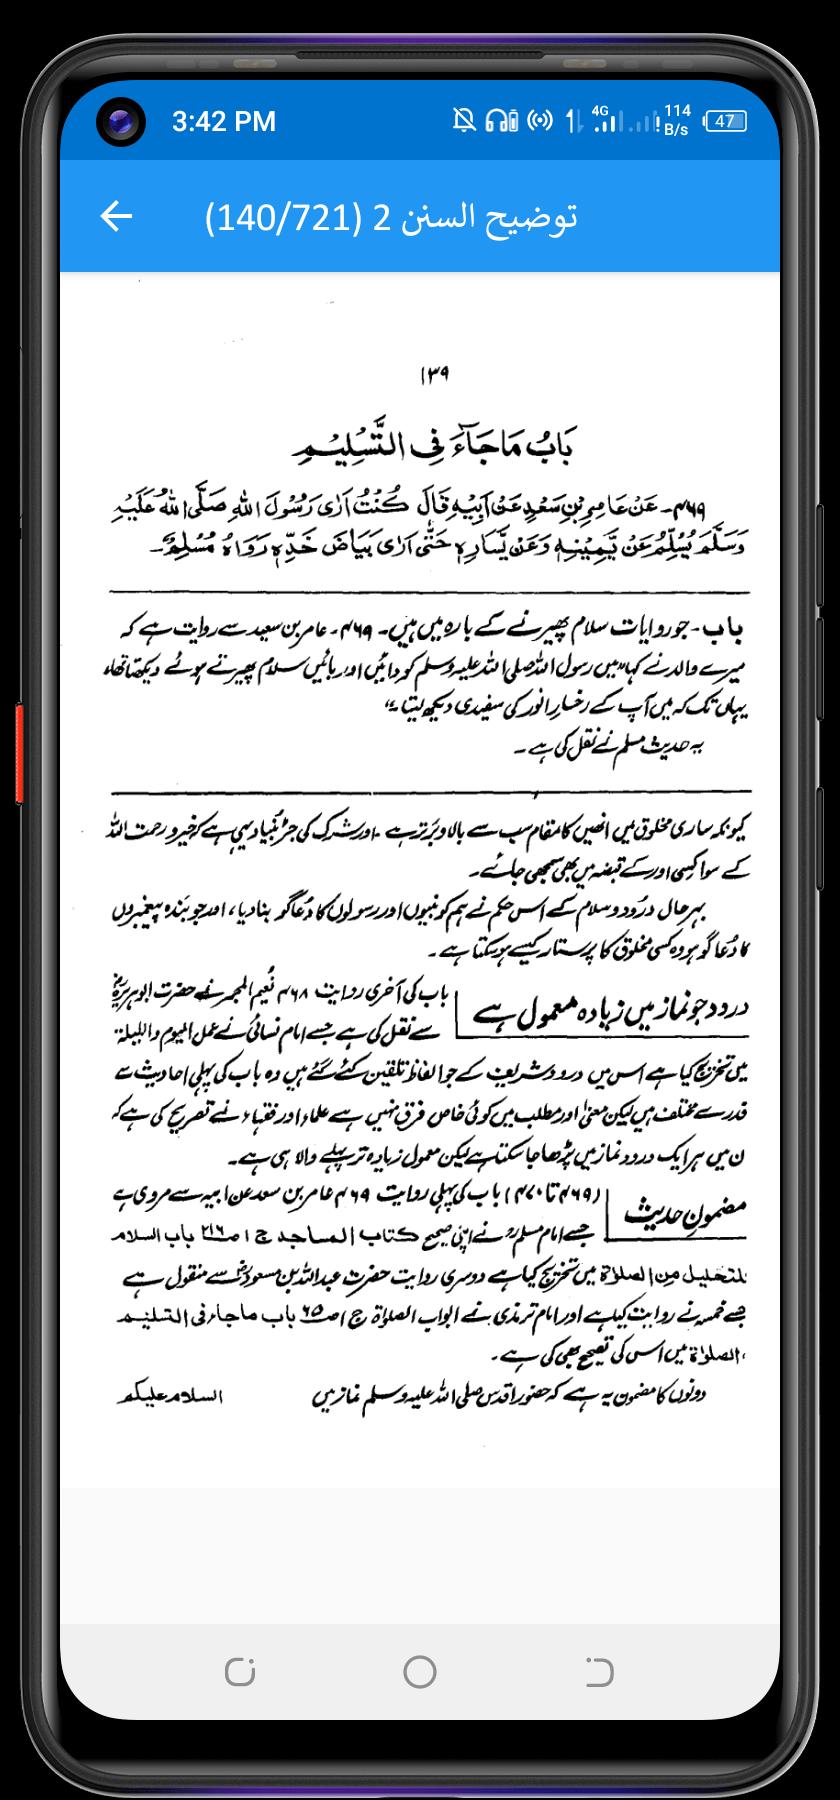 3:42 PM
4G
114
B/s
47
توضیح السنن 2 (140/721)
۱۳۹
بَابُ مَا جَآءَ فِی التَّسْلِیْمِ
۴۶۹۔ عَنْ عَامِرِ بْنِ سَعْدٍ عَنْ اَبِیْهِ قَالَ کُنْتُ اَرٰی رَسُوْلَ اللّٰهِ صَلَّی اللّٰهُ عَلَیْهِ
وَسَلَّمَ یُسَلِّمُ عَنْ یَّمِیْنِهٖ وَعَنْ یَّسَارِهٖ حَتّٰی اَرٰی بَیَاضَ خَدِّهٖ رَوَاهُ مُسْلِمٌ۔
باب۔ جو روایات سلام پھیرنے کے بارہ میں ہیں۔ ۴۶۹۔ عامر بن سعید سے روایت ہے کہ
میرے والد نے کہا "میں رسول اللہ صلی اللہ علیہ وسلم کو دائیں اور بائیں سلام پھیرتے ہوئے دیکھتا تھا،
یہاں تک کہ میں آپ کے رخسارِ انور کی سفیدی دیکھ لیتا۔"
یہ حدیث مسلم نے نقل کی ہے۔
کیونکہ ساری مخلوق میں انھیں کا مقام سب سے بالا و برتر ہے ۔ اور شرک کی جڑ بنیاد یہی ہے کہ خیر و رحمت اللہ
کے سوا کسی اور کے قبضہ میں بھی سمجھی جائے۔
بہر حال درود و سلام کے اس حکم نے ہم کو نبیوں اور رسولوں کا دُعا گو بنا دیا، اور جو بندہ پیغمبروں
کا دُعا گو ہو وہ کسی مخلوق کا پرستار کیسے ہو سکتا ہے۔
درود جو نماز میں زیادہ معمول ہے
باب کی آخری روایت ۴۶۸ نُعیم المجمر نے حضرت ابوہریرہؓ
سے نقل کی ہے جسے امام نسائیؒ نے عمل الیوم واللیلۃ
میں تخریج کیا ہے اس میں درود شریف کے جو الفاظ تلقین کئے گئے ہیں وہ باب کی پہلی احادیث سے
قدرے مختلف ہیں لیکن معنیٰ اور مطلب میں کوئی خاص فرق نہیں ہے علماء اور فقہاء نے تصریح کی ہے کہ
ن میں ہر ایک درود نماز میں پڑھا جا سکتا ہے لیکن معمول زیادہ تر پہلے والا ہی ہے۔
مضمونِ حدیث
(۴۶۹ تا ۴۷۰) باب کی پہلی روایت ۴۶۹ عامر بن سعد عن ابیہ سے مروی ہے
جسے امام مسلمؒ نے اپنی صحیح کتاب المساجد ج ۱ ص ۲۱۶ باب السلام
للتحلیل من الصلاة میں تخریج کیا ہے دوسری روایت حضرت عبداللہ بن مسعودؓ سے منقول ہے
جسے خمسہ نے روایت کیا ہے اور امام ترمذی نے ابواب الصلاة ج ۱ ص ۶۵ باب ماجاء فی التسلیم
الصلوٰة میں اس کی تصحیح بھی کی ہے۔
دونوں کا مضمون یہ ہے کہ حضورِ اقدس صلی اللہ علیہ وسلم نماز میں السلام علیکم